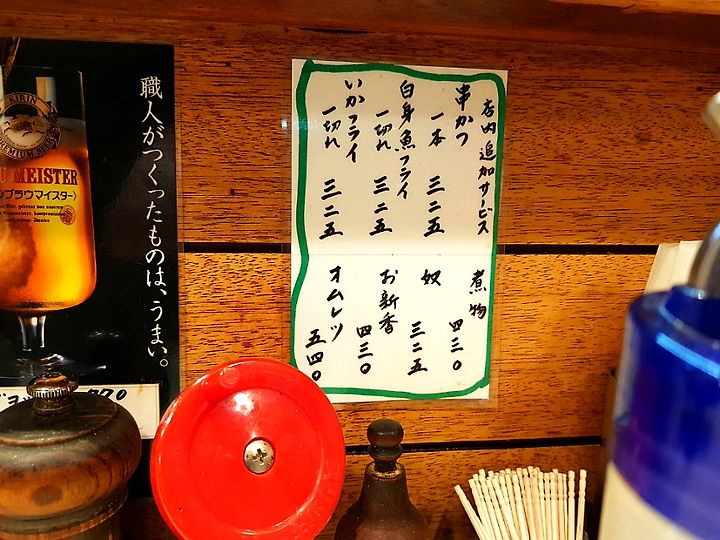 店内追加サービス
串かつ
一本 三二五
白身魚フライ
一切れ 三二五
いかフライ
一切れ 三二五
煮物
四三〇
奴
三二五
お新香
四三〇
オムレツ
五四〇
職人がつくったものは、うまい。
KIRIN
PREMIUM BEER
U MEISTER
ブラウマイスター)